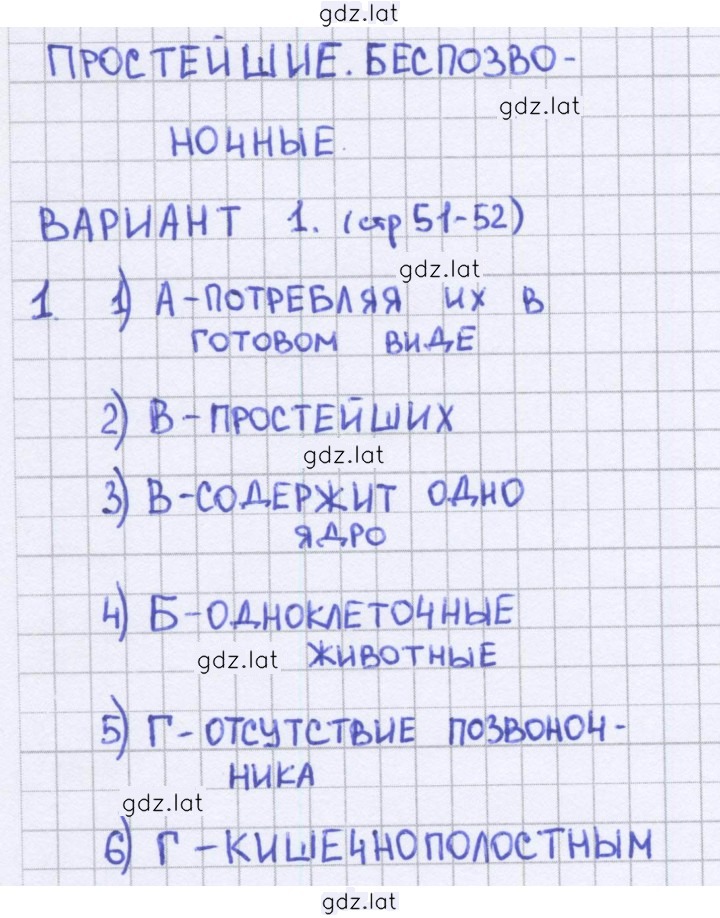 gdz.lat
ПРОСТЕЙШИЕ. БЕСПОЗВО-
gdz.lat
НОЧНЫЕ.
ВАРИАНТ 1. (стр 51-52)
gdz.lat
1. 1) А-ПОТРЕБЛЯЯ ИХ В
ГОТОВОМ ВИДЕ
2) В-ПРОСТЕЙШИХ
gdz.lat
3) В-СОДЕРЖИТ ОДНО
ЯДРО
4) Б-ОДНОКЛЕТОЧНЫЕ
gdz.lat ЖИВОТНЫЕ
5) Г-ОТСУТСТВИЕ ПОЗВОНОЧ-
НИКА
gdz.lat
6) Г-КИШЕЧНОПОЛОСТНЫМ
gdz.lat